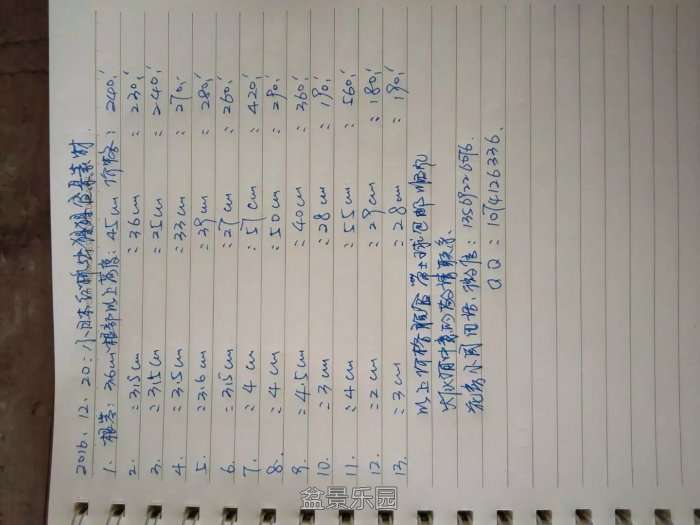 2016.12.20:小日本红
1. 根茎:3.6cm 根部以上高度:45cm 价格:240,
2. :3.5cm :36cm :230,
3. :3.5cm :25cm :240,
4. :3.5cm :33cm :270,
5. :3.6cm :39cm :280,
6. :3.5cm :27cm :260,
7. :4cm :57cm :420,
8. :4cm :50cm :290,
9. :4.5cm :40cm :360,
10. :3cm :28cm :190,
11. :4cm :55cm :560,
12. :2cm :29cm :180,
13. :3cm :28cm :190,
以上价格 土球包邮
请联系
花房小周 微信:
QQ:1074126336
盆景乐园